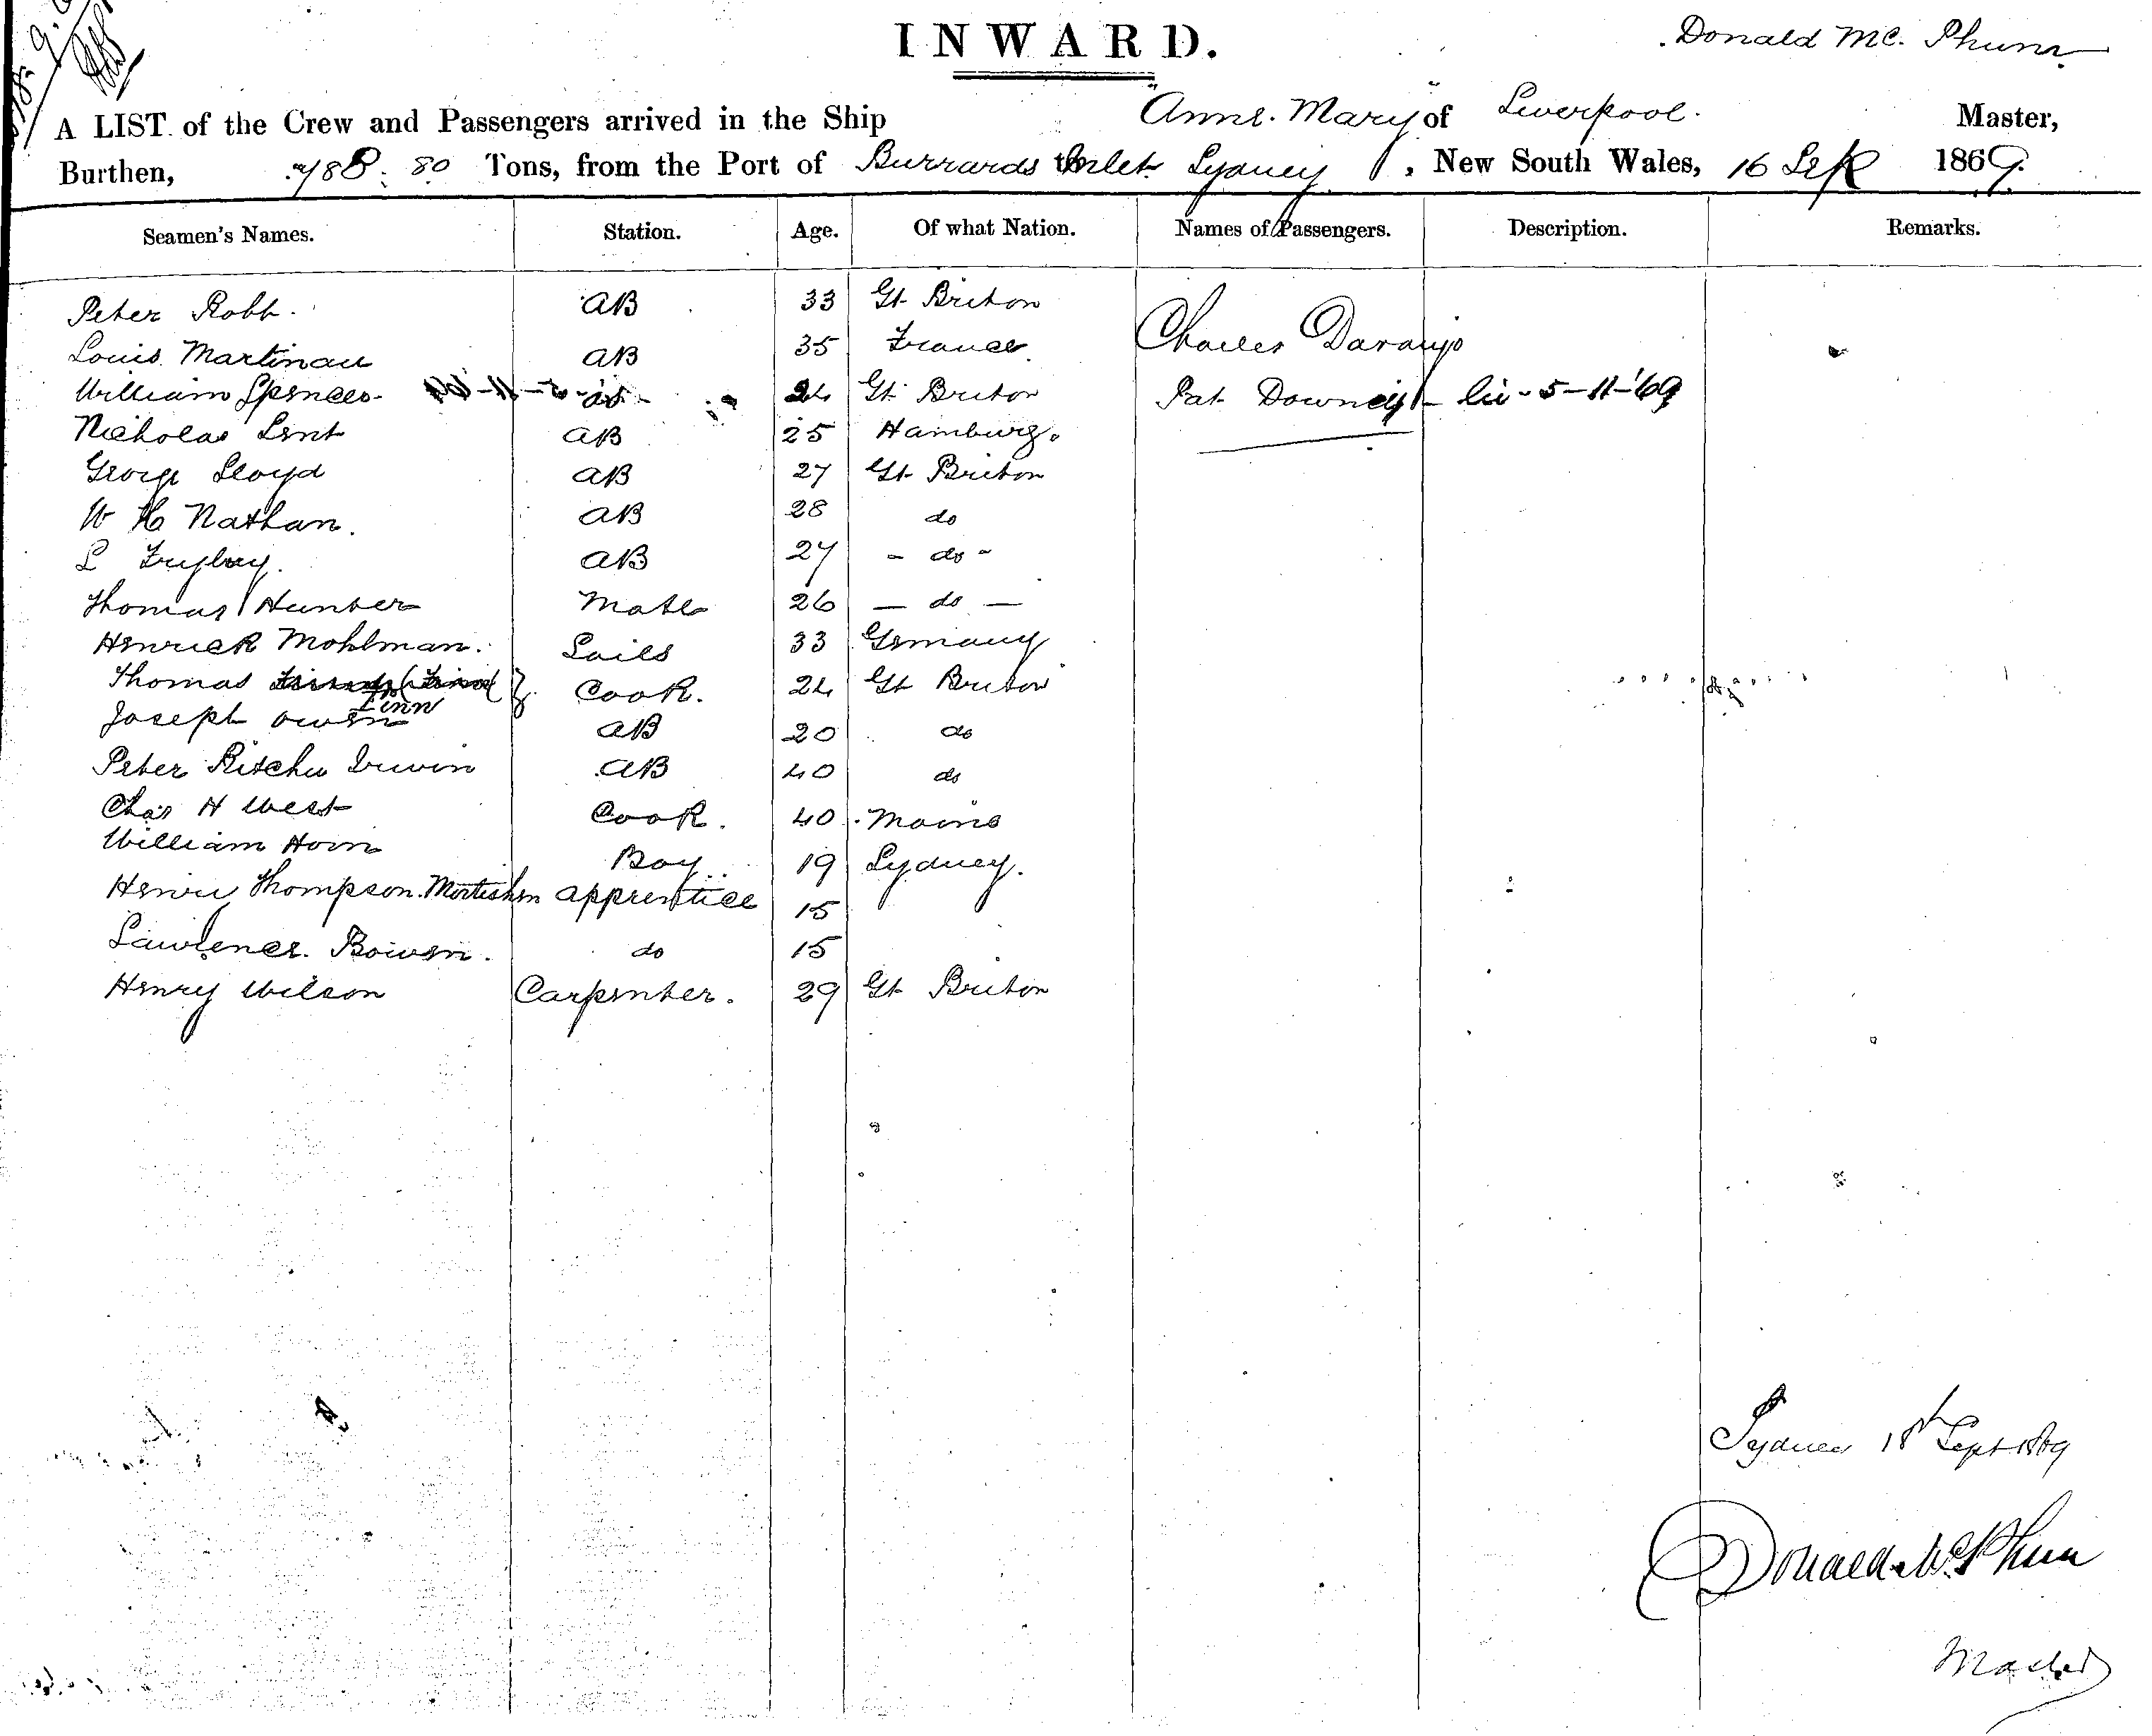 INWARD.
Donald Mc. Phun
A LIST of the Crew and Passengers arrived in the Ship Anne. Mary of Liverpool. Master,
Burthen, 788. 80 Tons, from the Port of Burrards Inlet Sydney, New South Wales, 16 Sep 1869.
Seamen's Names. Station. Age. Of what Nation. Names of Passengers. Description. Remarks.
Peter Robb. AB 33 Gt Briton Charles Daraujo
Louis Martinau AB 35 France.
William Spencer 24 Gt Briton Pat Downey 5-11-'69
Nicholas Lent AB 25 Hamburg.
George Lloyd AB 27 Gt Briton
W H Nathan. AB 28 do
L AB 27 - do -
Thomas Hunter Mate 26 — do —
Henrick Mohlman. Sails 33 Germany
Thomas Finn Cook. 24 Gt Briton
Joseph Owen AB 20 do
Peter Ritchie Irwin AB 40 do
Chas H West Cook. 40 Maine
William Horn Boy 19 Sydney.
Henri Thompson. apprentice 15
Lawrence. Bowen. do 15
Henry Wilson Carpenter. 29 Gt Briton
Sydney 18 Sept 1869
Donald McPhun
Master